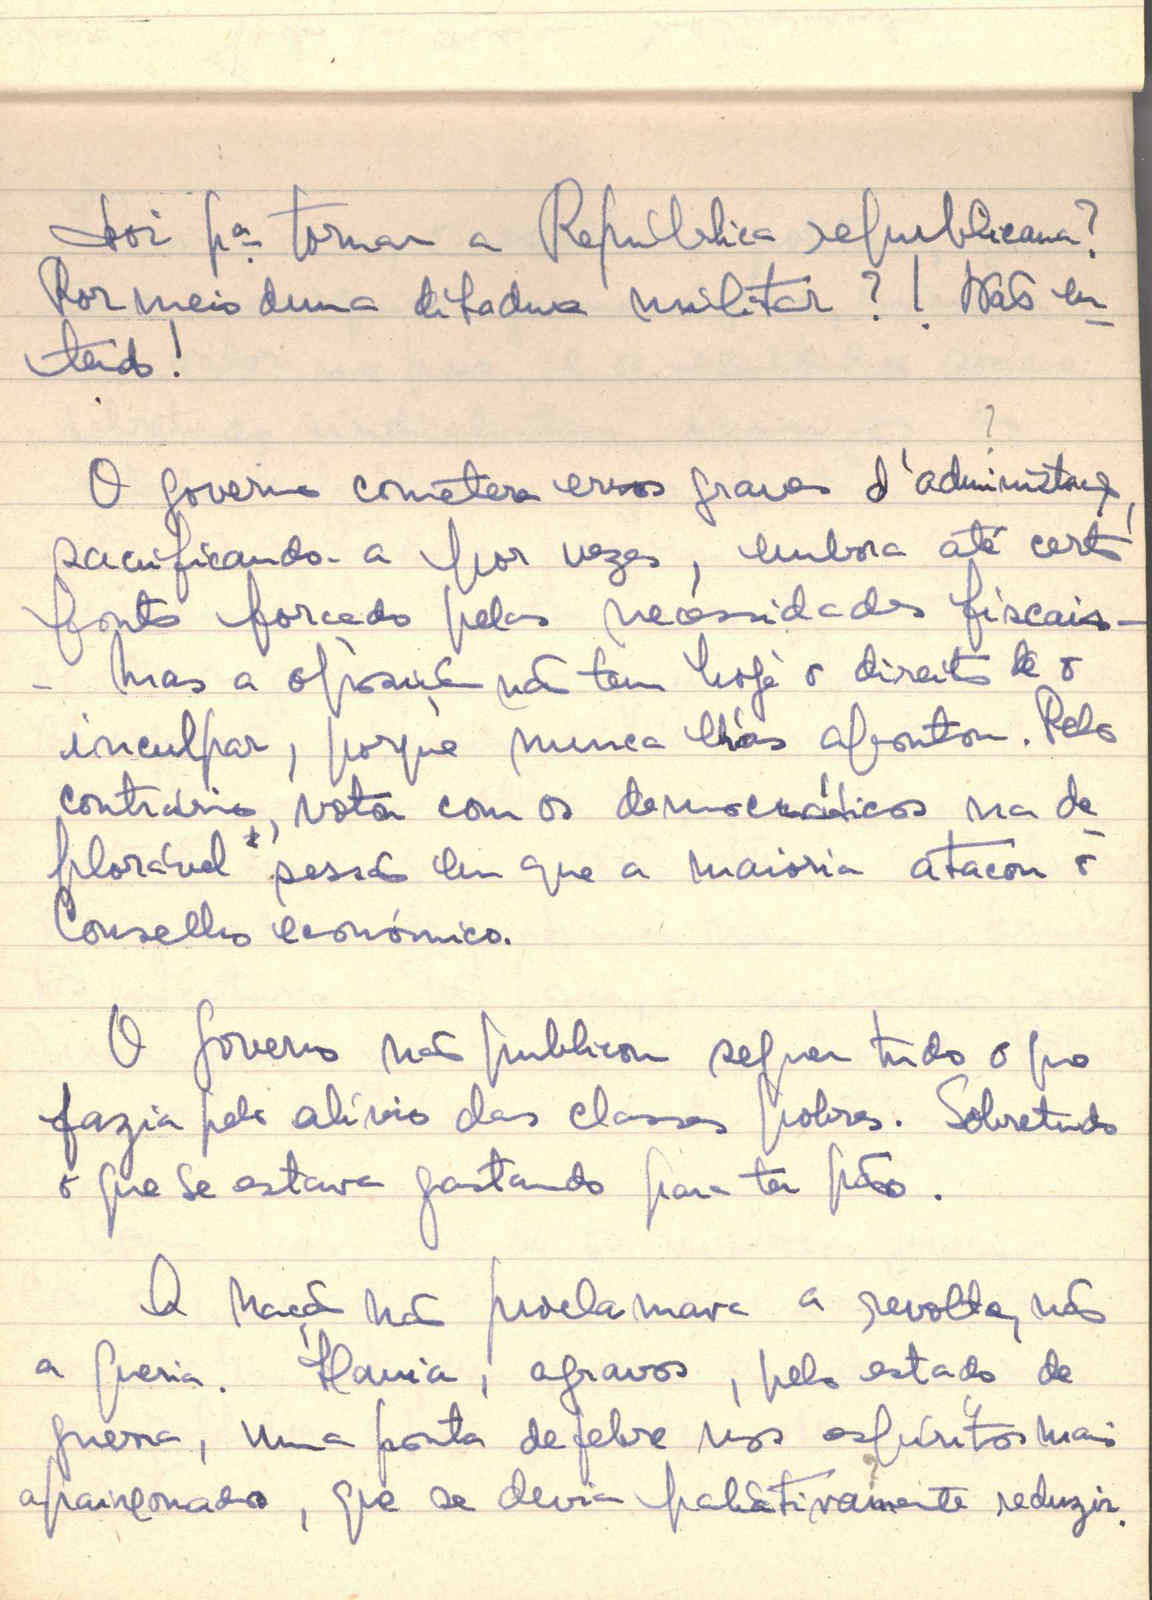 Foi pª tornar a República republicana?
Por meio duma ditadura militar?! Não en-
tendo!
?
O governo cometera erros graves d'administração,
sacrificando-a por vezes, embora até certo
ponto forçado pelas necessidades fiscais -
- mas a oposição não tem hoje o direito de o
inculpar, porque nunca lhos apontou. Pelo
contrário, votou com os democráticos na de-
plorável * sessão em que a maioria atacou o
Conselho económico.
O Governo não publicou sequer tudo o que
fazia pelo alívio das classes pobres. Sobretudo
o que se estava gastando para ter pão.
A nação não proclamava a revolta, não
a queria. Havia, agravos, pelo estado de
guerra, uma ponta de febre nos espíritos mais
apaixonados, que se devia paliativamente reduzir.